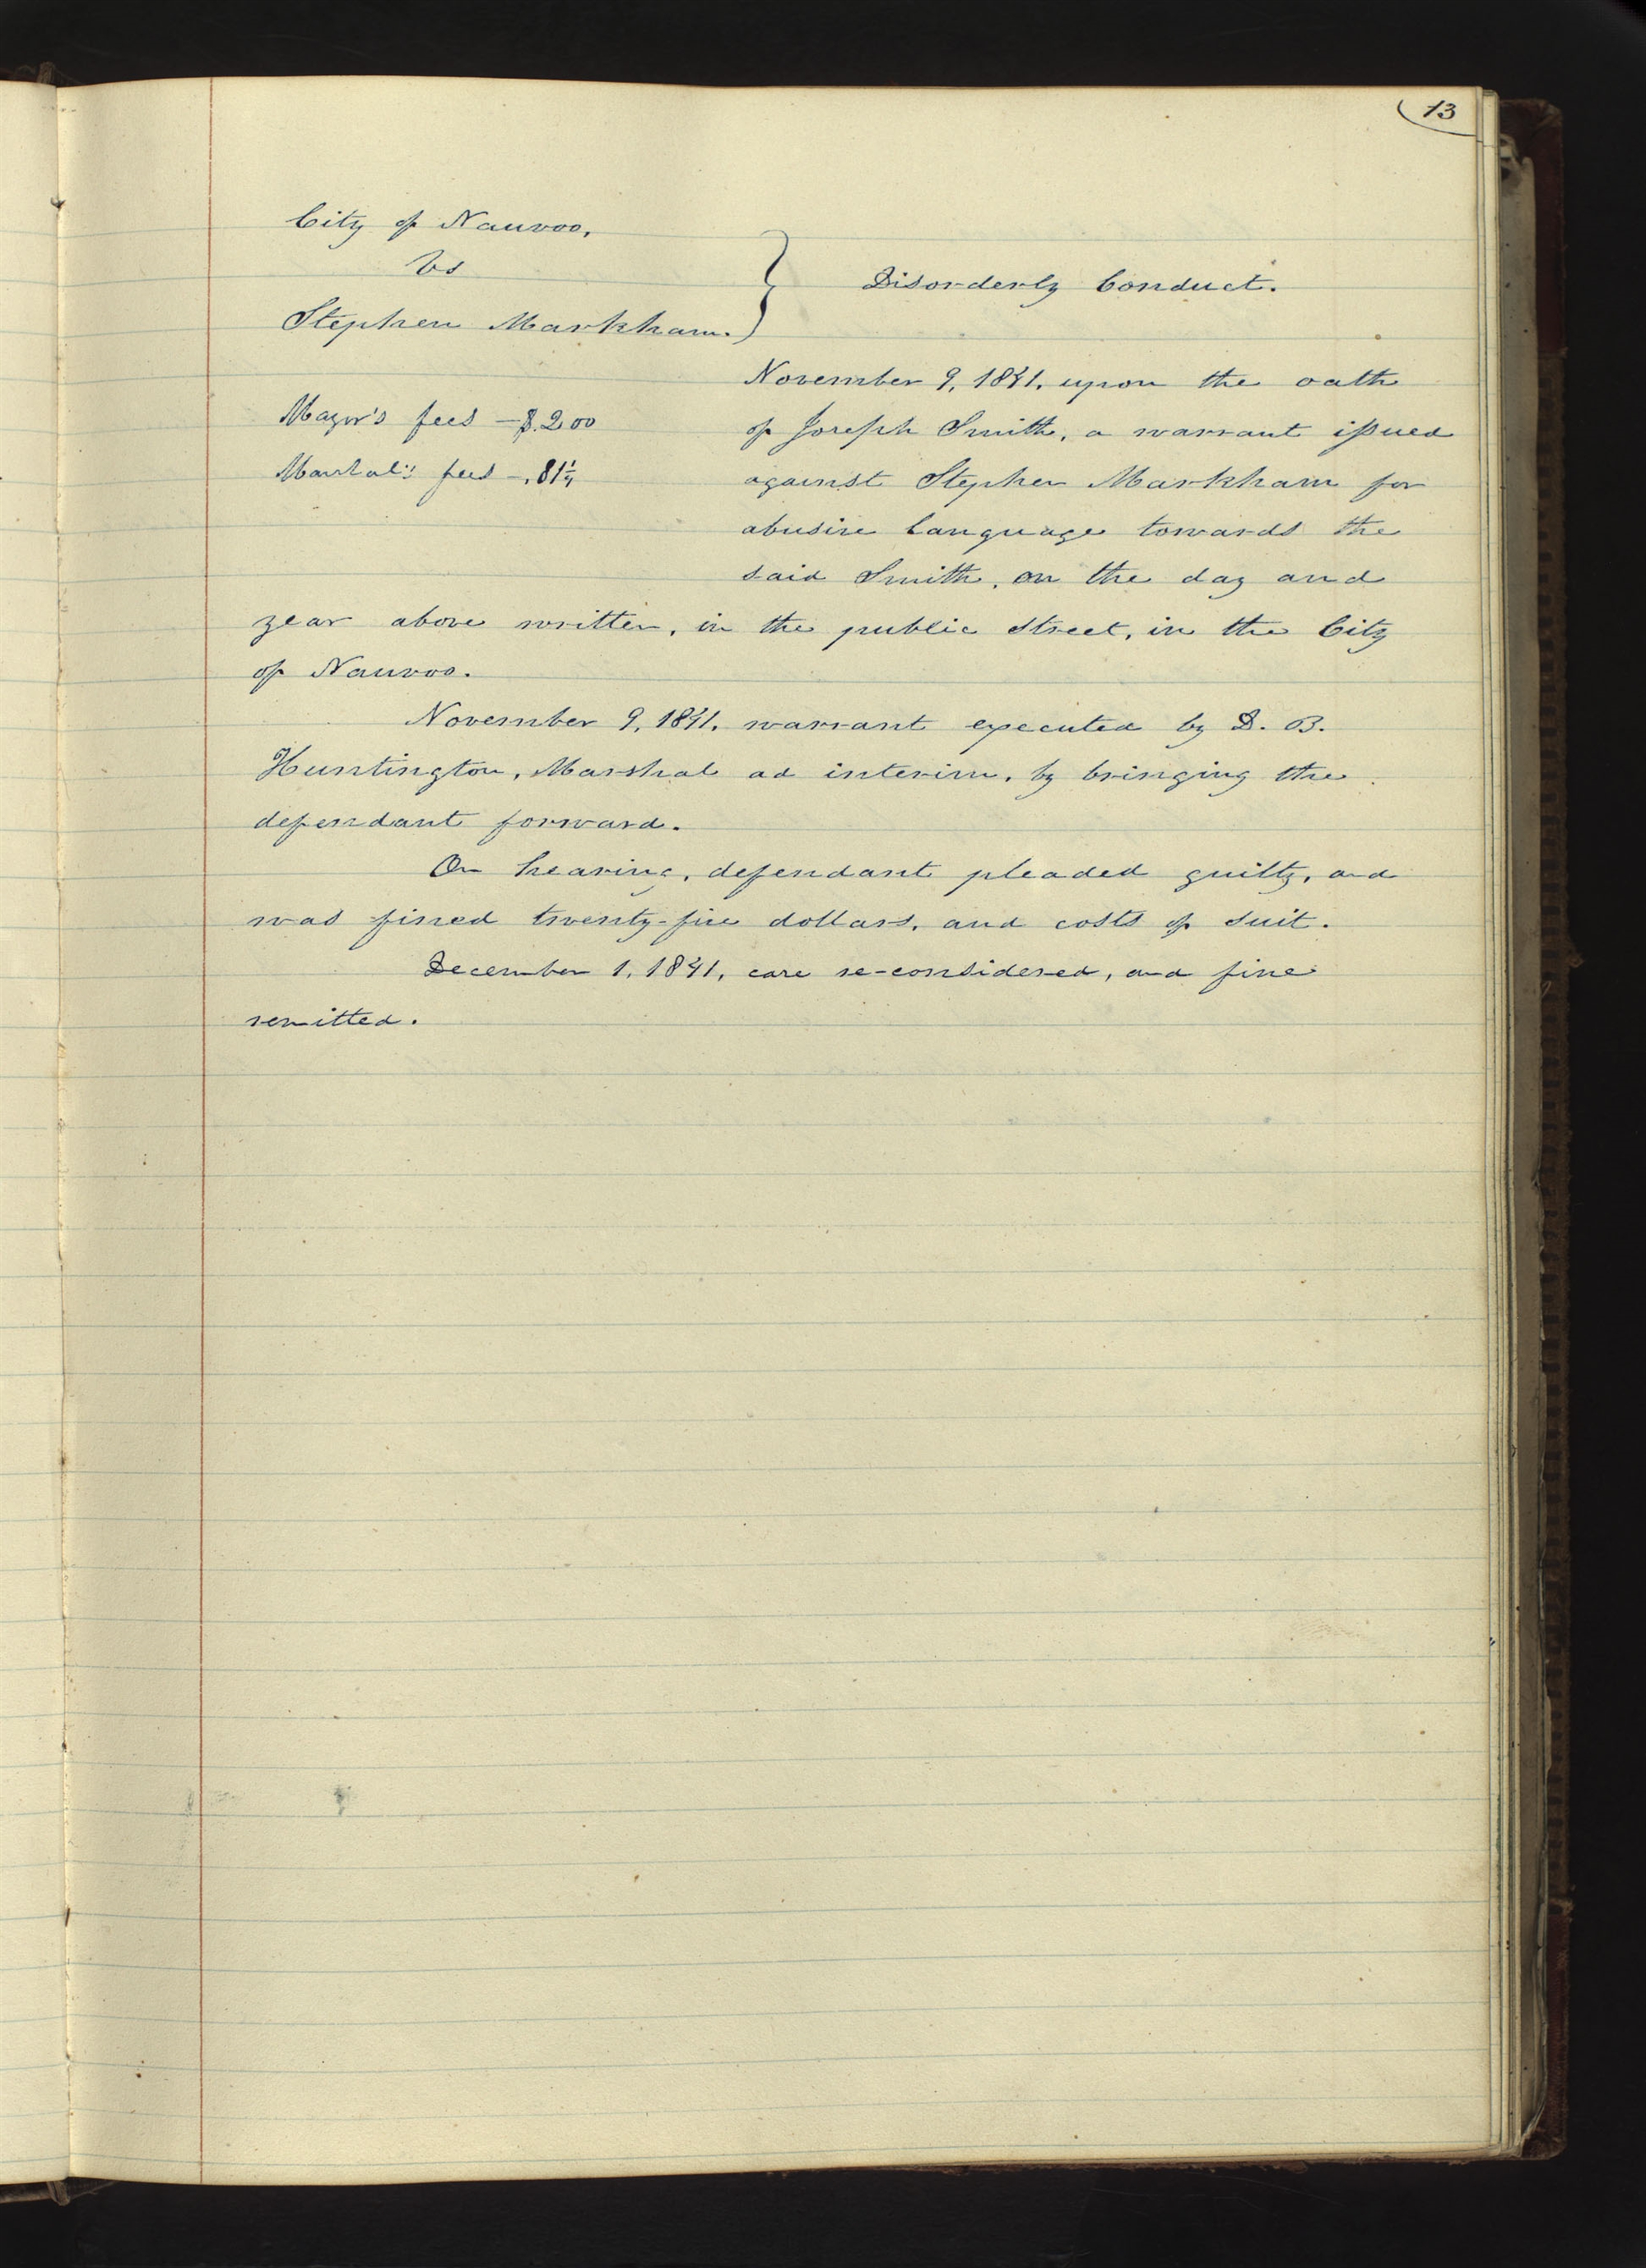 13
City of Nauvoo,
vs
Stephen Markham.
Disorderly Conduct.
Mayor's fees — $2.00
Marshal's fees — .81¼
November 9, 1841, upon the oath
of Joseph Smith, a warrant issued
against Stephen Markham for
abusive language towards the
said Smith, on the day and
year above written, in the public street, in the City
of Nauvoo.
November 9, 1841, warrant executed by D. B.
Huntington, Marshal ad interim, by bringing the
defendant forward.
On hearing, defendant pleaded guilty, and
was fined twenty-five dollars, and costs of suit.
December 1, 1841, case re-considered, and fine
remitted.